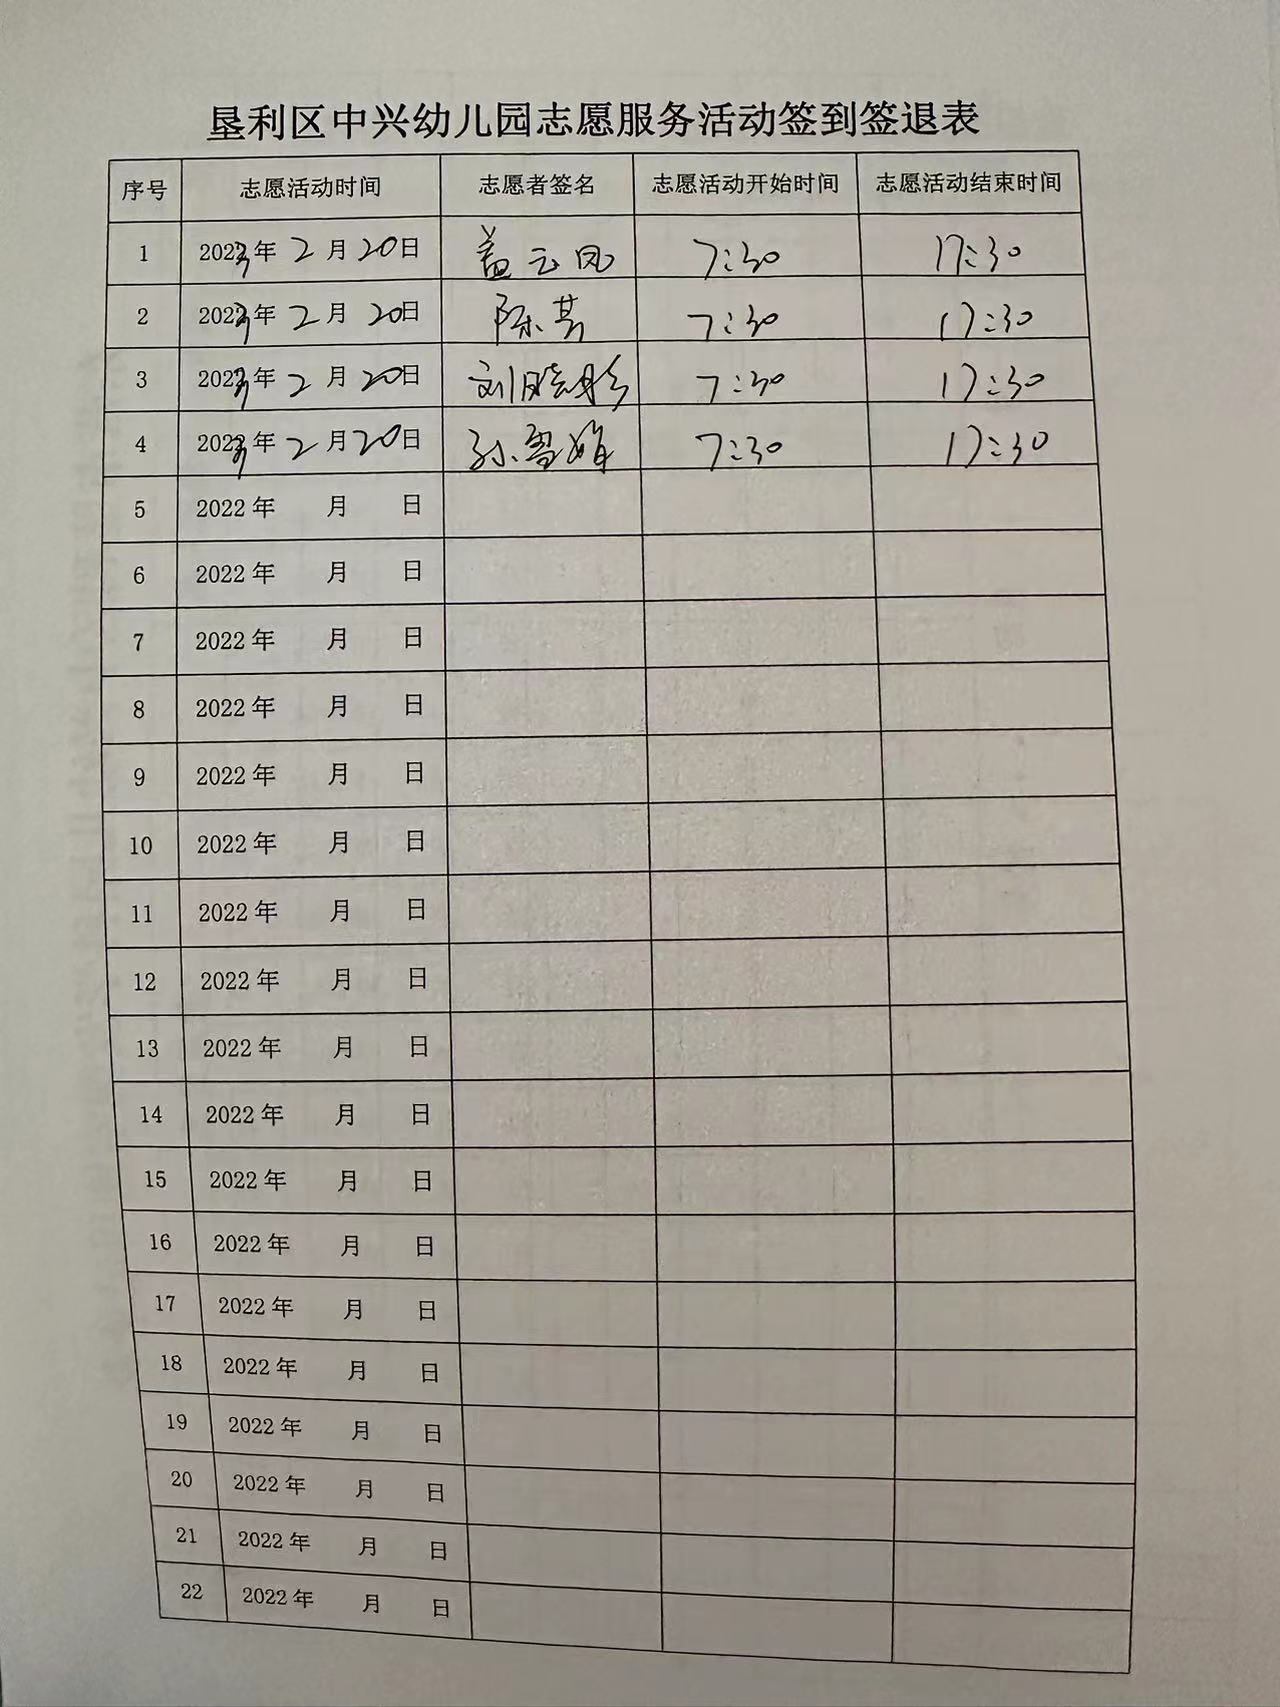 垦利区中兴幼儿园志愿服务活动签到签退表
序号 志愿活动时间 志愿者签名 志愿活动开始时间 志愿活动结束时间
1 2023年 2月20日 盖云凤 7:30 17:30
2 2023年 2月20日 陈芸 7:30 17:30
3 2023年 2月20日 刘晓彤 7:30 17:30
4 2023年 2月20日 孙雪娟 7:30 17:30
5 2022年 月 日
6 2022年 月 日
7 2022年 月 日
8 2022年 月 日
9 2022年 月 日
10 2022年 月 日
11 2022年 月 日
12 2022年 月 日
13 2022年 月 日
14 2022年 月 日
15 2022年 月 日
16 2022年 月 日
17 2022年 月 日
18 2022年 月 日
19 2022年 月 日
20 2022年 月 日
21 2022年 月 日
22 2022年 月 日